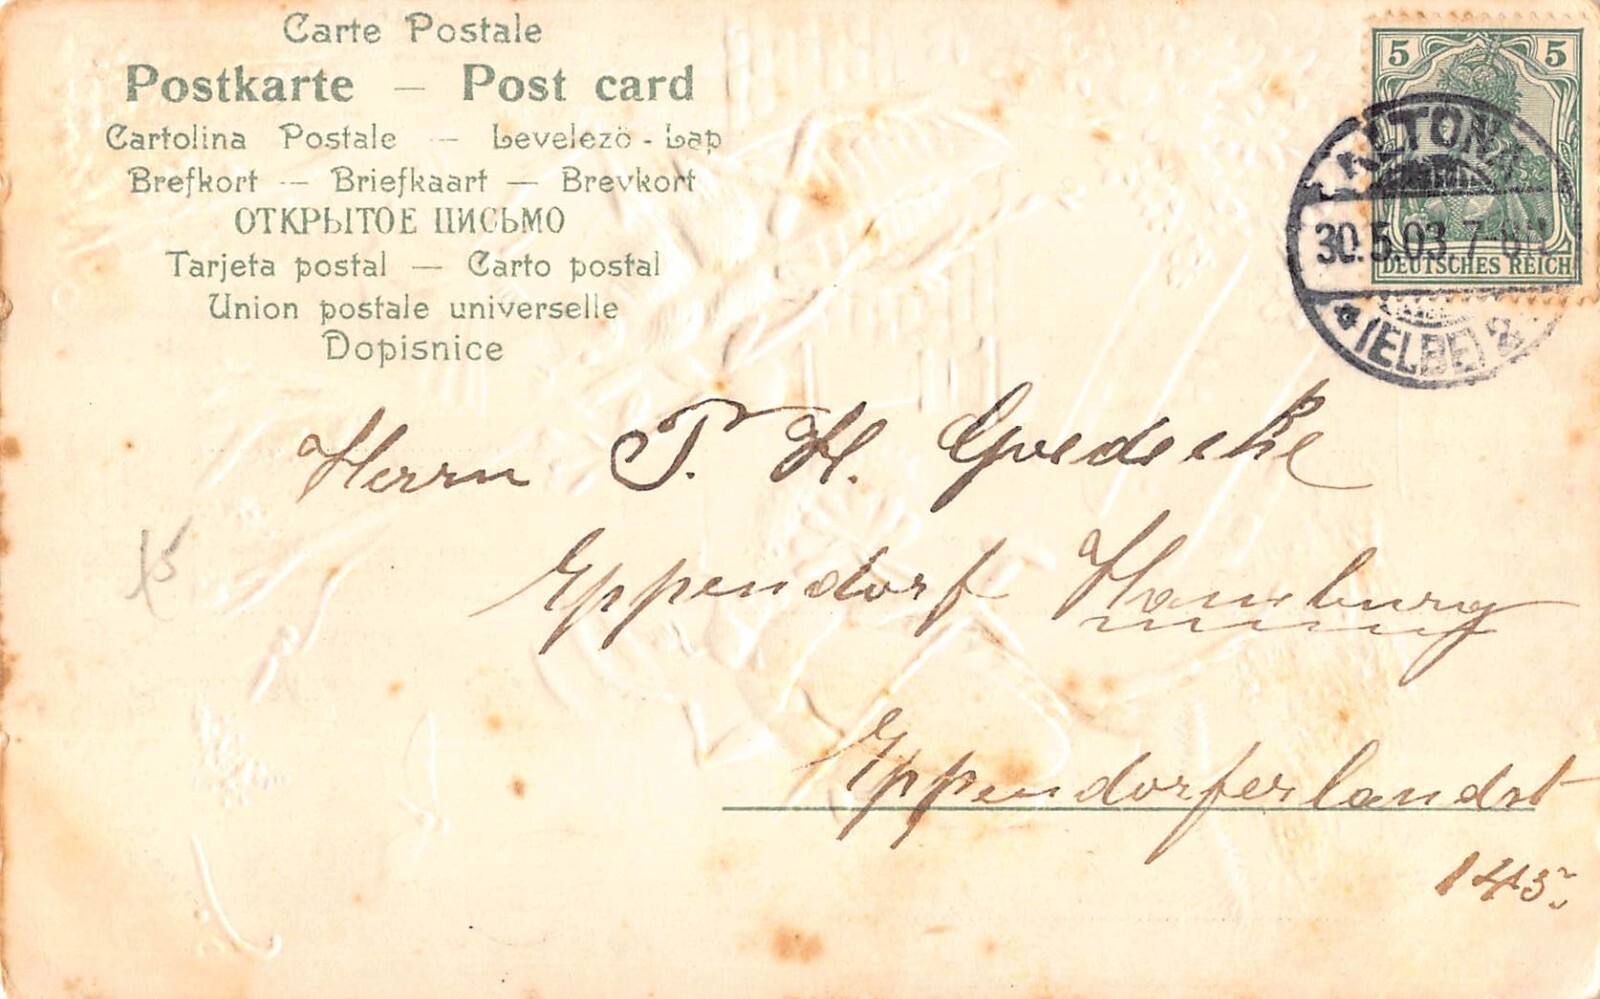 Carte Postale
Postkarte — Post card
Cartolina Postale — Levelezö-Lap
Brefkort — Briefkaart — Brevkort
ОТКРЫТОЕ ПИСЬМО
Tarjeta postal — Carto postal
Union postale universelle
Dopisnice
5 5
DEUTSCHES REICH
ALTONA
30.5.03.7-8N
(ELBE)
Herrn T. H. Goedecke
Eppendorf Hamburg
Eppendorferlandst
145